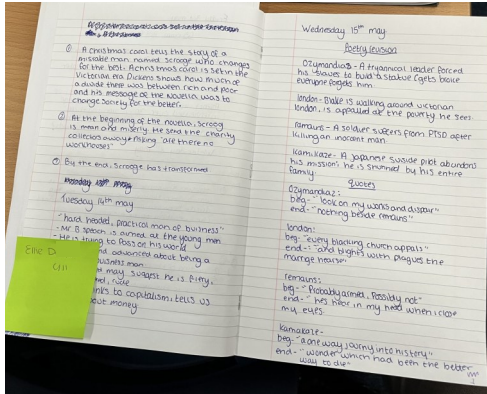 ① A christmas carol tells the story of a
miserable man, named scrooge who changes
for the best. A christmas carol is set in the
Victorian era. Dickens shows how much of
a divide there was between rich and poor
and his message of the novella was to
change society for the better.
② At the beginning of the novella, scroog
is mean and misrly. He send the charity
collectors away asking "are there no
workhouses"
③ By the end, scrooge has transformed
Tuesday 14th may
"hard headed, practical man of buisness"
- Mr B speech is aimed at the young men
- He is trying to Boss on his world
and advanced about being a
buisness man
may suggest he is firey,
rude
links to capitalism, tells us
about money
Ellie D
Wednesday 15th may
Poetry revision
Ozymandias - A tyrannical leader forced
his slaves to build a statue
everyone forgets him.
london - Blake is walking around victorian
london, is appalled at the poverty he sees.
remains - A soldier suffers from PTSD after
killing an inocent man.
kamikaze - A Japanese suside pilot abandons
his mission he is shunned by his entire
family.
quotes
Ozymandiaz:
beg - "look on my works and dispair"
end - "nothing beside remains"
london:
beg - "every blacking church appals"
end - "and blighes with plagues the
marrige hearse"
remains:
beg - "Probably armed, Possibly not"
end - "hes hear in my head when i close
my eyes
kamakaze -
beg: "a one way journy into history"
end - "wonder which had been the better
way to die"